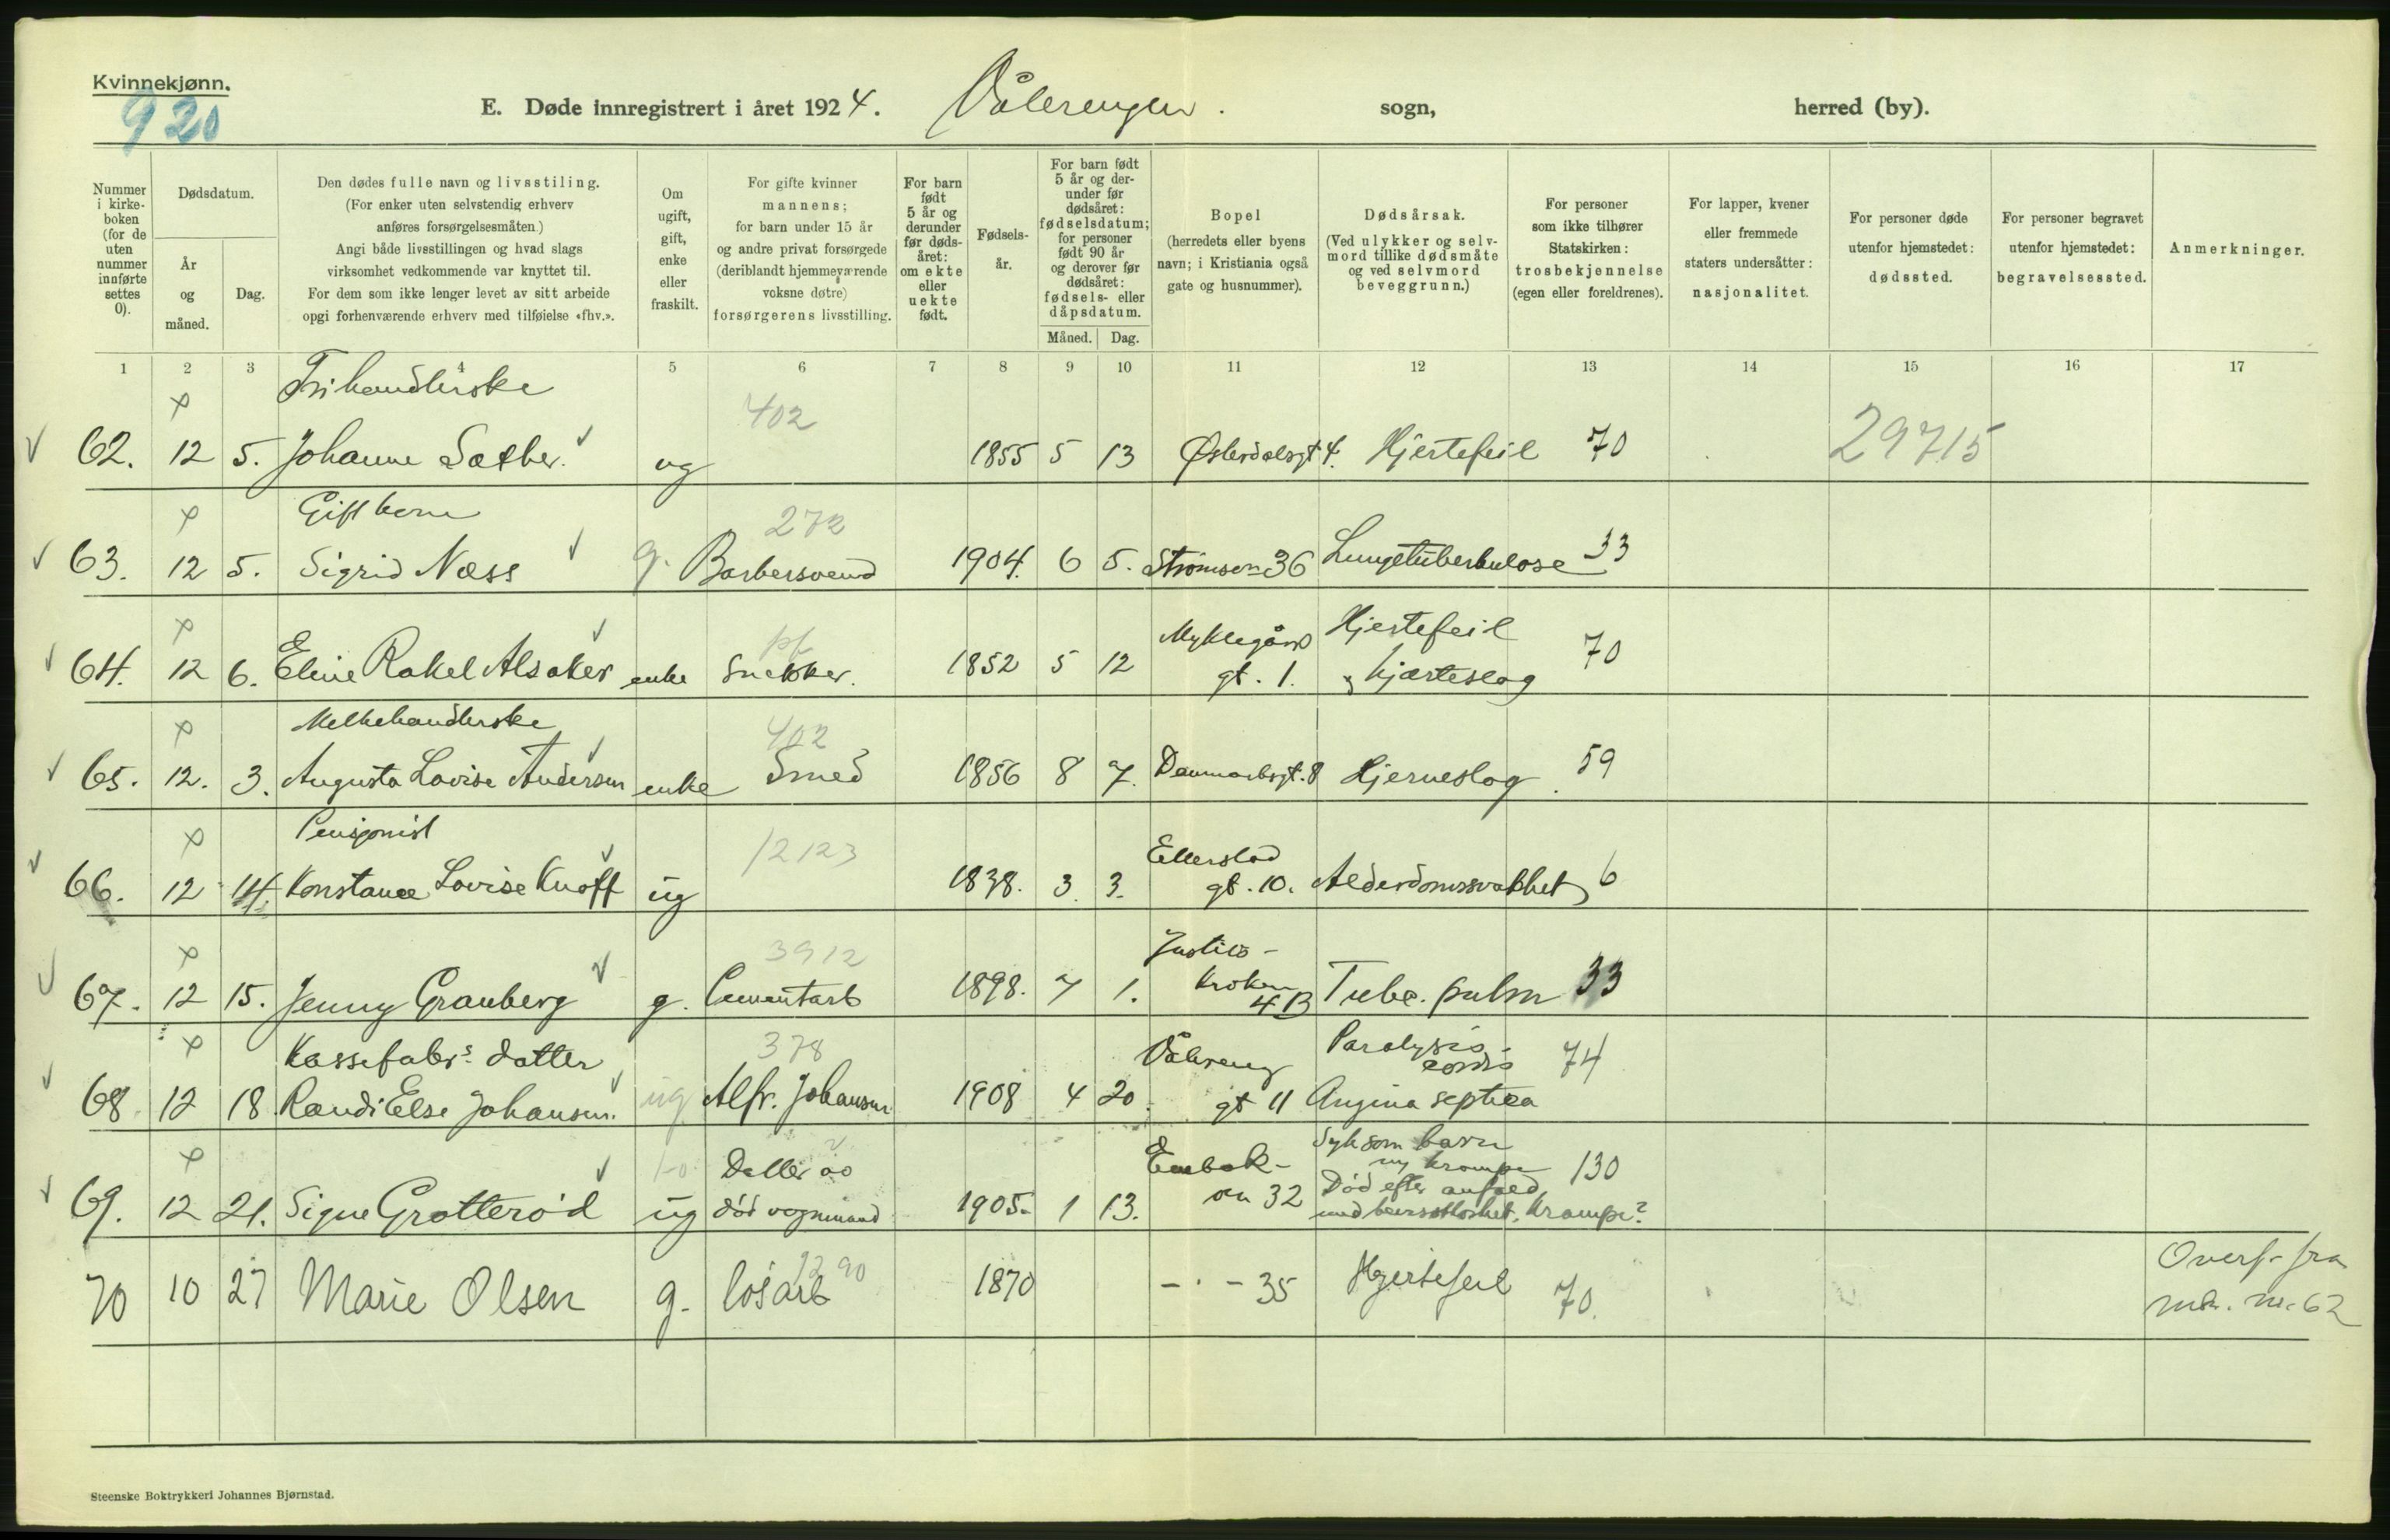 Kvinnekjønn.
920
E. Døde innregistrert i året 1924. Vålerengen. sogn, herred (by).
Nummer i kirkeboken (for de uten nummer innførte settes 0).
Dødsdatum.
År og måned.
Dag.
Den dødes fulle navn og livsstiling.
(For enker uten selvstendig erhverv
anføres forsørgelsesmåten)
Angi både livsstillingen og hvad slags
virksomhet vedkommende var knyttet til.
For dem som ikke lenger levet av sitt arbeide
opgi forhenværende erhverv med tilføielse «fhv.».
Om ugift, gift, enke eller fraskilt.
For gifte kvinner
mannens;
for barn under 15 år
og andre privat forsørgede
(deriblandt hjemmeværende
voksne døtre)
forsørgerens livsstilling.
For barn født 5 år og derunder før dødsåret: om ekte eller uekte født.
Fødselsår.
For barn født 5 år og derunder før dødsåret: fødselsdatum; for personer født 90 år og derover før dødsåret: fødsels- eller dåpsdatum.
Måned. Dag.
Bopel
(herredets eller byens
navn; i Kristiania også
gate og husnummer).
Dødsårsak.
(Ved ulykker og selvmord tillike dødsmåte
og ved selvmord
beveggrunn.)
For personer
som ikke tilhører
Statskirken:
trosbekjennelse
(egen eller foreldrenes).
For lapper, kvener
eller fremmede
staters undersåtter:
nasjonalitet.
For personer døde
utenfor hjemstedet:
dødssted.
For personer begravet
utenfor hjemstedet:
begravelsessted.
Anmerkninger.
1 2 3 4 5 6 7 8 9 10 11 12 13 14 15 16 17
handlerske
402
62. 12 5. Johanne Sæther. ug 1855 5 13 Østerdalsgt 4. Hjertefeil 70 29715
Gift kone
272
63. 12 5. Sigrid Næss g. Barbersvend 1904. 6 5. Strømsvn 36 Lungetuberkulose 33
pf
64. 12 6. Eline Rakel Alsaker enke Snekker. 1852 5 12 Myklegård gt. 1. Hjertefeil
hjærteslag 70
Melkehandlerske
402
65. 12. 3. Augusta Lovise Andersen enke Smed 1856 8 7. Danmarksgt. 8 Hjerneslag. 59
Pensjonist
12123
66. 12 14. Konstance Lovise Knoff ug 1838. 3. 3. Ellerstad gt. 10. Alderdomssvakhet 6
3912
67. 12 15. Jenny Granberg g. Cementarb 1898. 7 1. Justiskroken 4B Tube. pulm 33
Kassefabrs. datter
378
68. 12 18 Randi Else Johansen. ug Alfr. Johansen 1908 4 20. Vålreng gt 11 Paralysis cordis
Angina septica 74
69. 12 21. Signe Grotterød ug Datter av
død vognmand 1905. 1 13. Enebakvn 32 Syk som barn
krampe
Død efter anfald
med bevisstløshet. Krampe? 130
1290
70 10 27 Marie Olsen g. løsarb 1870 - · - 35 Hjertefeil 70.
Overf. fra
nr. 62
Steenske Boktrykkeri Johannes Bjørnstad.